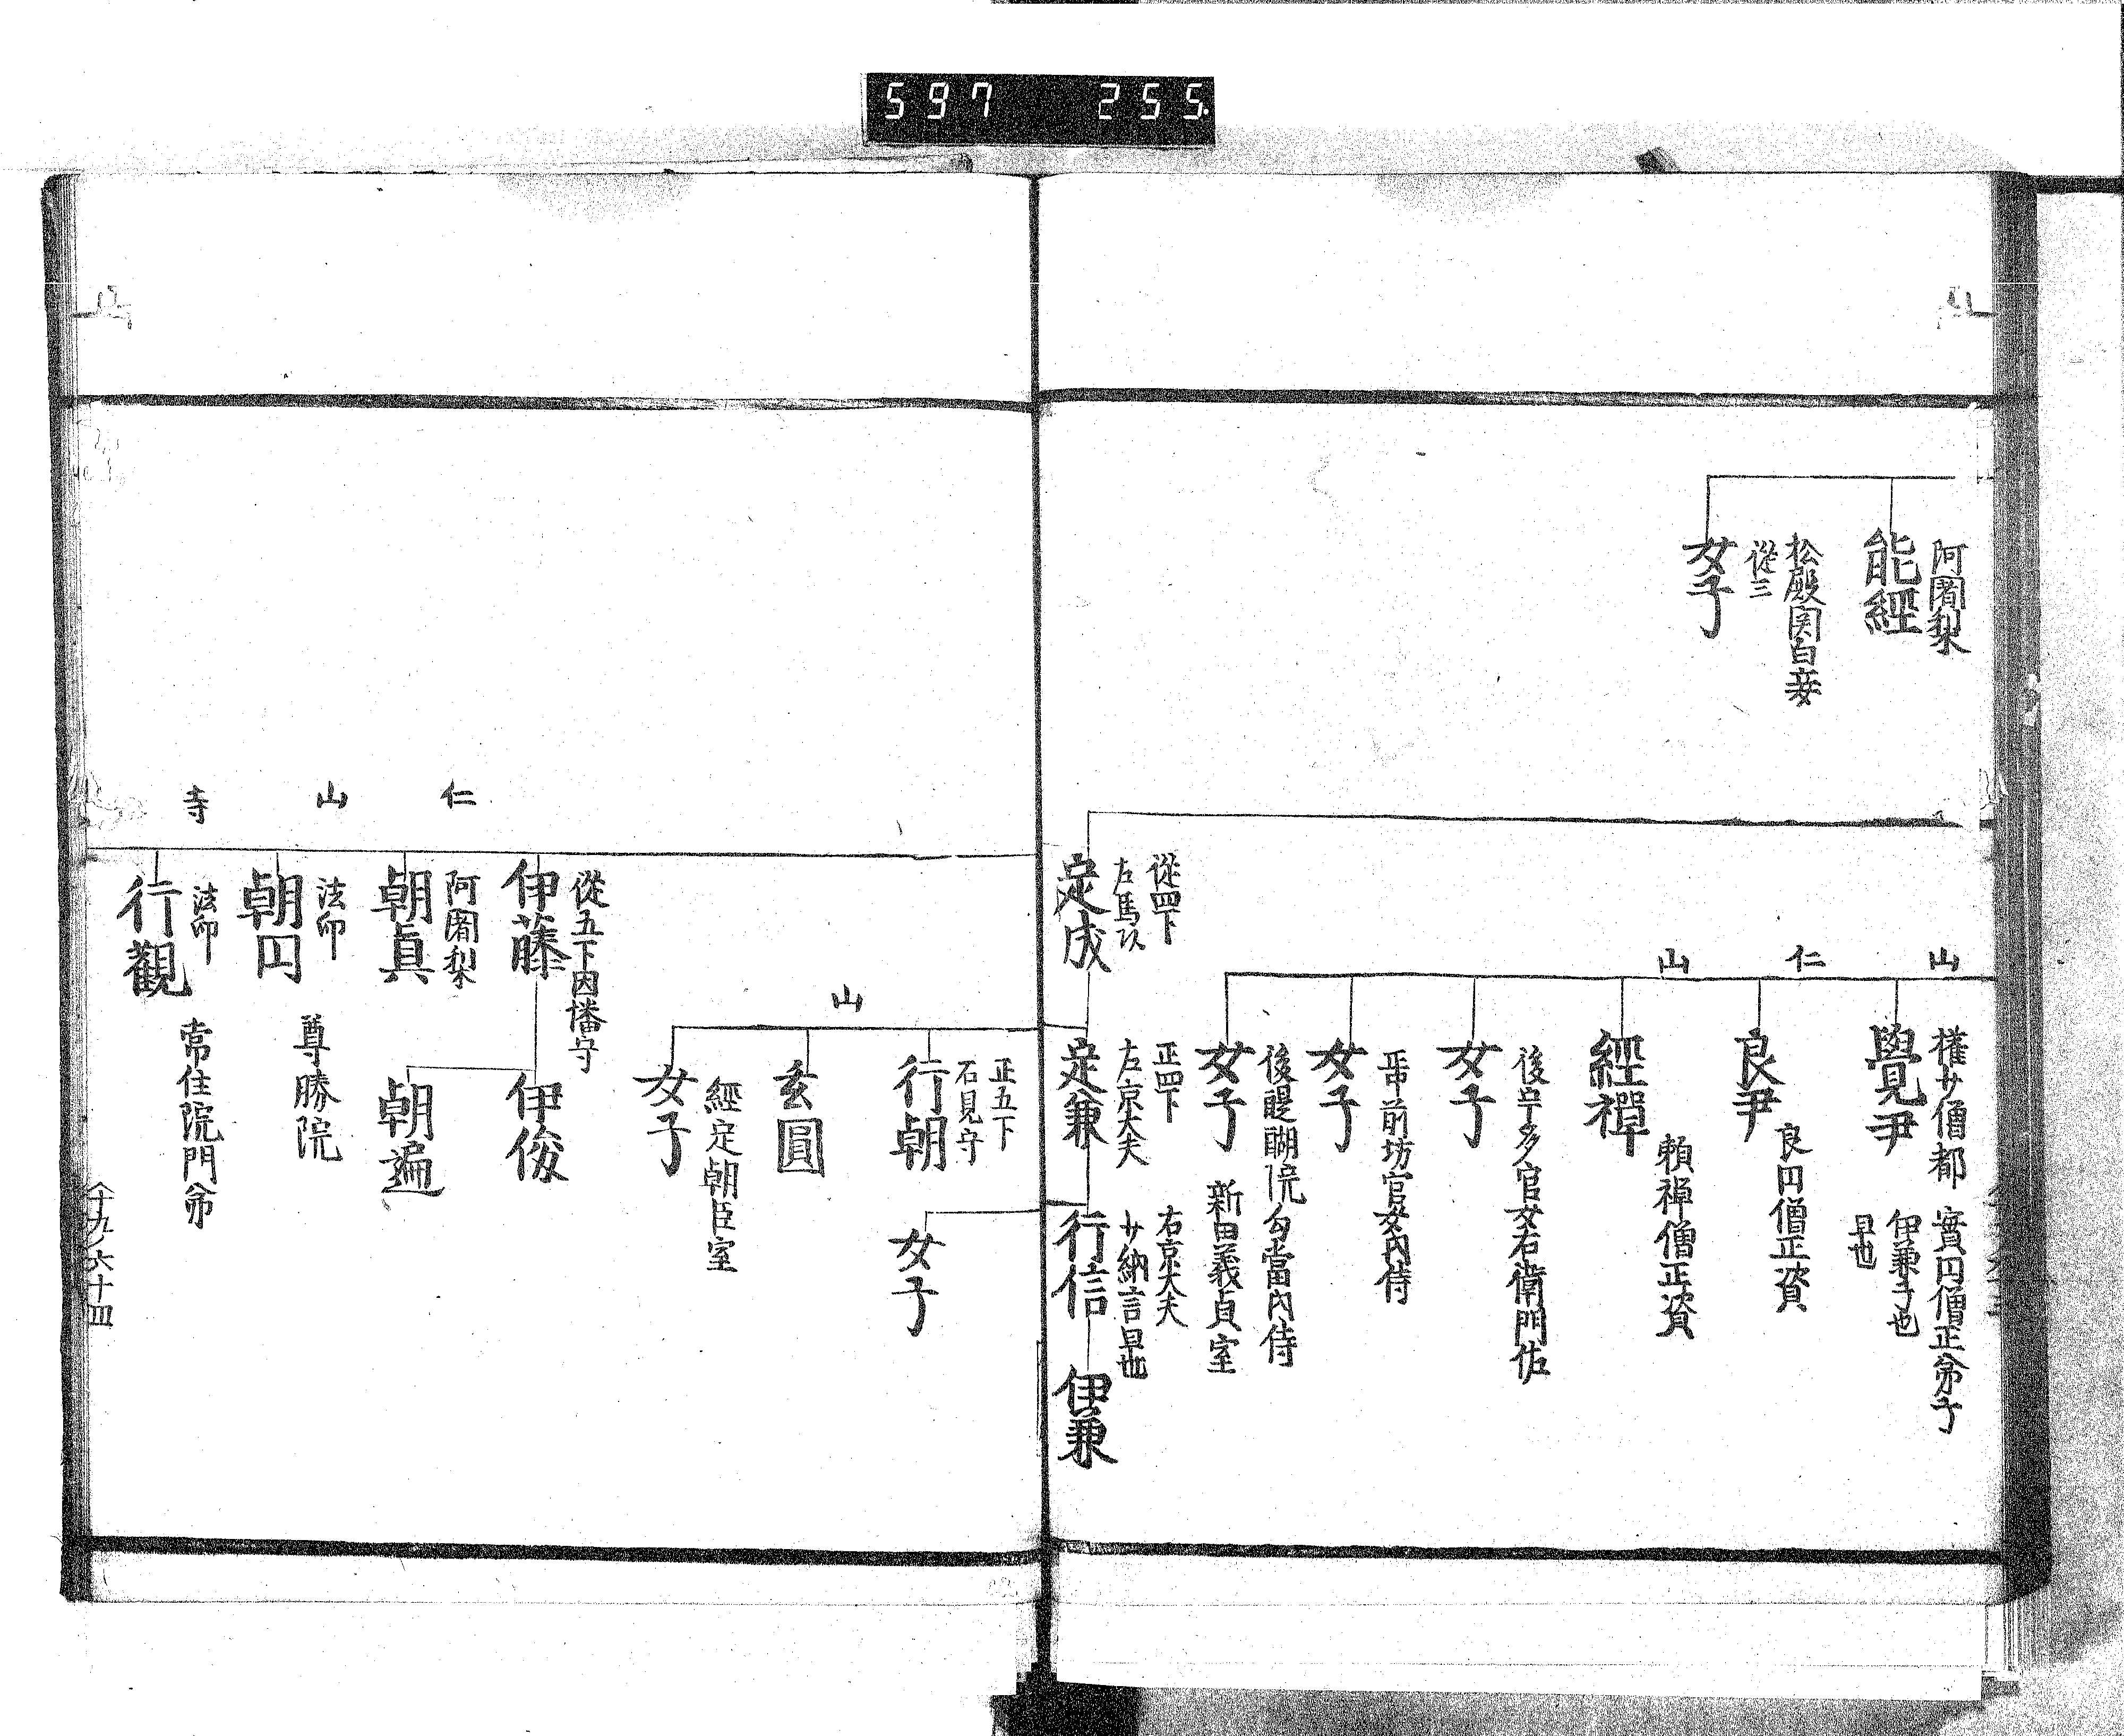 597 255
阿闍梨
能經
松殿関白妾
從三
女子
山
權少僧都 實円僧正弟子
伊兼子也
早也
覺尹
仁
良尹
良円僧正資
山
經禪
頼禅僧正資
後宇多官女右衛門佐
女子
前坊官女内侍
女子
後醍醐院勾當内侍
女子 新田義貞室
從四下
左馬頭
定成
正四下
左京大夫
定兼
右京大夫
少納言早也
行信
伊兼
正五下
石見守
行朝
女子
山
玄圓
經定朝臣室
女子
從五下因幡守
伊藤
伊俊
朝遍
仁
阿闍梨
朝眞
山
法印
朝円
尊勝院
寺
法印
行觀
常住院門弟
十九ノ六十四